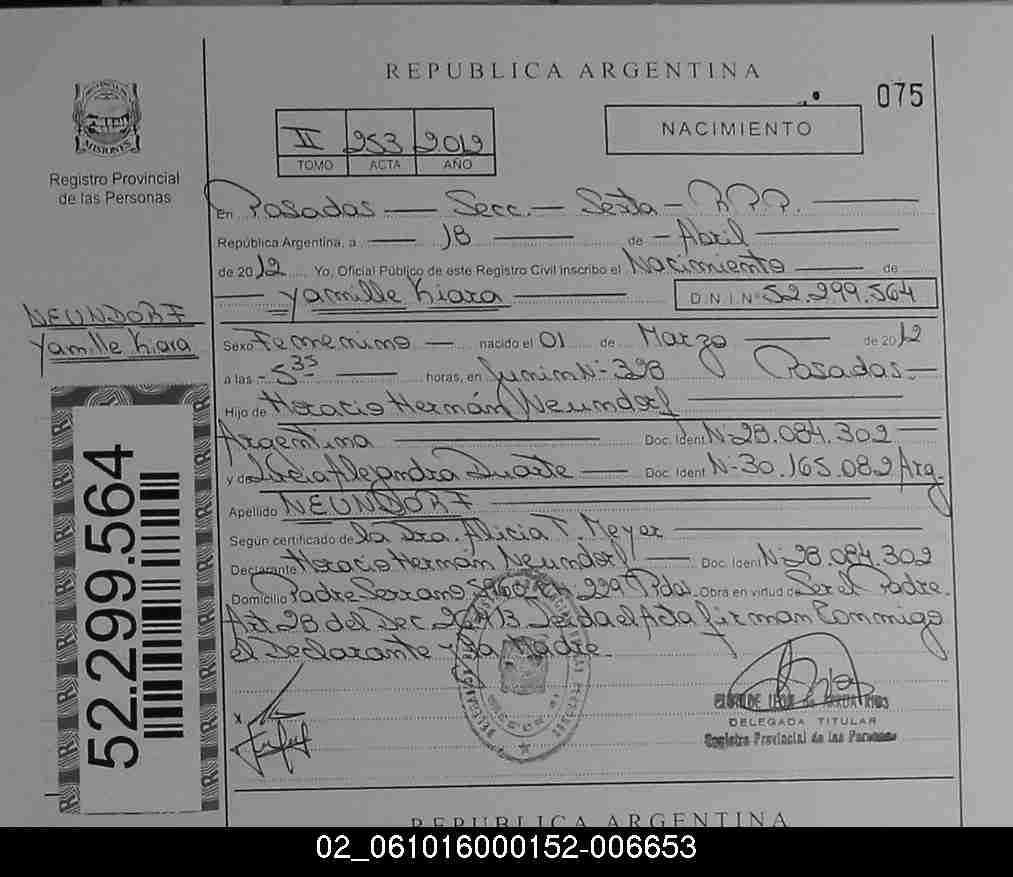 REPUBLICA ARGENTINA
075
II 253 2012
TOMO ACTA AÑO
NACIMIENTO
MISIONES
Registro Provincial
de las Personas
En Posadas — Secc. — Sexta — R.P.P. —
República Argentina, a — 18 — de — Abril —
de 2012 Yo, Oficial Público de este Registro Civil inscribo el Nacimiento — de
— Yamille Kiara — D.N.I. Nº 52.299.564
NEUNDORF
Yamille Kiara
Sexo Femenino — nacido el 01 de Marzo — de 2012
a las - 5 35 — horas, en Junin Nº 398 Posadas.—
Hijo de Horacio Hernán Neundorf —
Argentina — Doc. Ident Nº 28.084.302 —
y de Alejandra Duarte — Doc. Ident Nº 30.165.082 Arg.
Apellido NEUNDORF —
Según certificado de la Dra. Alicia T. Meyer —
Declarante Horacio Hernán Neundorf — Doc. Ident Nº 28.084.302
Domicilio Padre Serrano Ch. 229 Pdas. Obra en virtud de Ser el Padre.
Art 28 del Dec Leída el Acta firman Conmigo
el Declarante y la Madre.
x
DELEGADA TITULAR
Registro Provincial de las Personas
52.299.564
REPUBLICA ARGENTINA
02_061016000152-006653